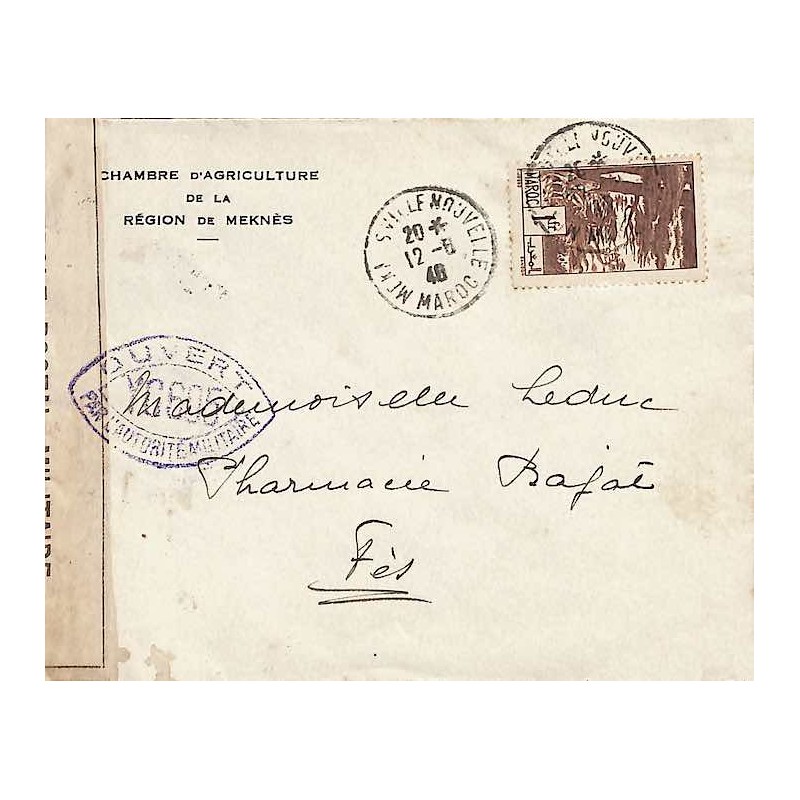 CHAMBRE D'AGRICULTURE
DE LA
RÉGION DE MEKNÈS
VILLE NOUVELLE
20 *
12 -8
40
MAROC
MAROC
1
OUVERT
PAR L'AUTORITÉ MILITAIRE
Mademoiselle Leduc
Pharmacie Bagat
Fès
MILITAIRE